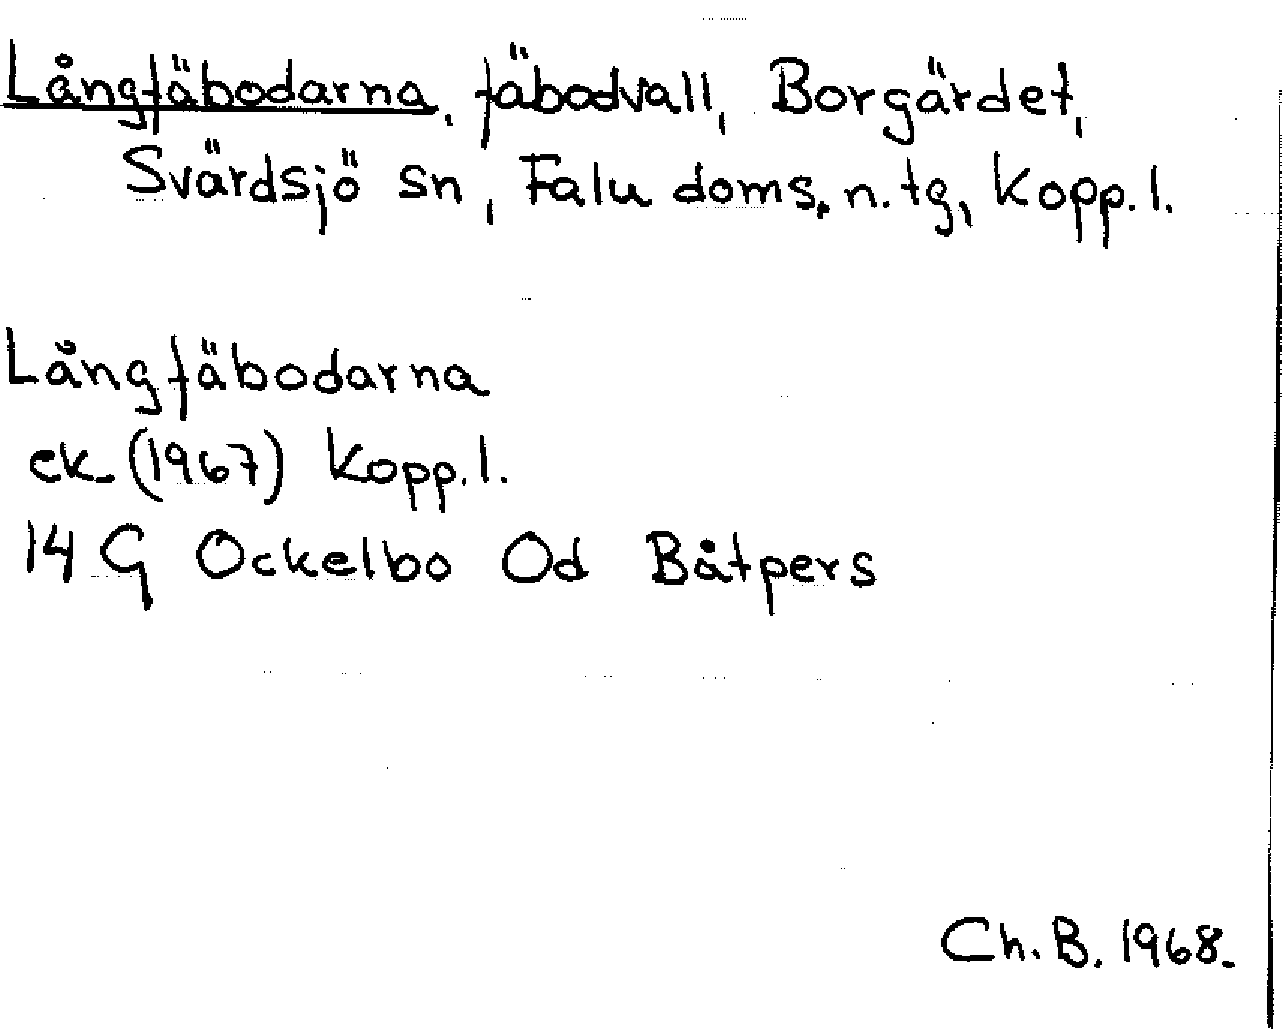 Långfäbodarna, fäbodvall, Borgärdet,
Svärdsjö sn, Falu doms. n. tg, Kopp. l.
Långfäbodarna
ek (1967) Kopp. l.
14 G Ockelbo Od Båtpers
Ch. B. 1968.